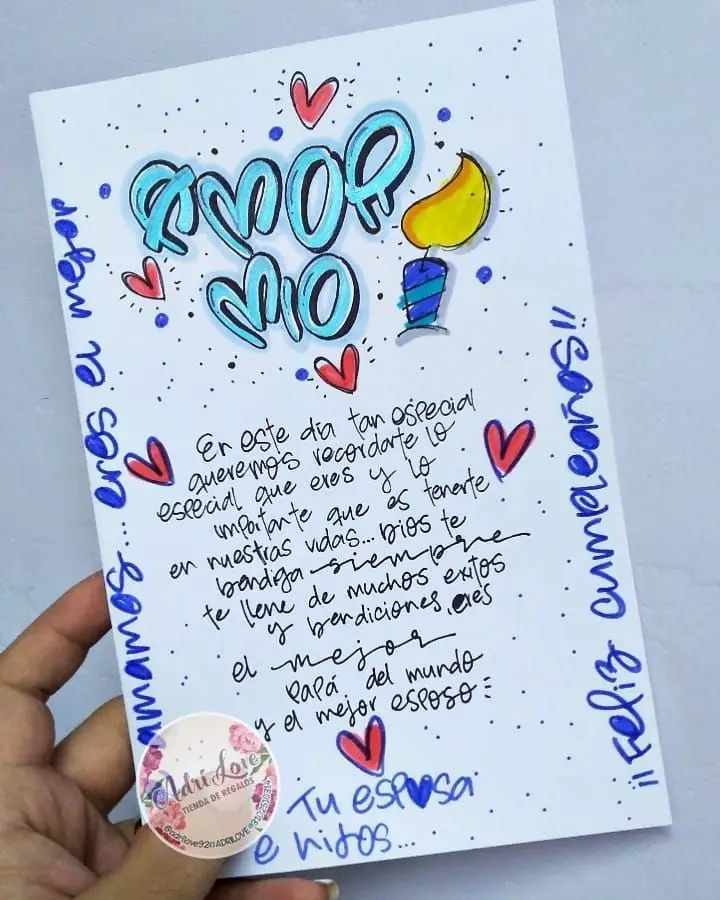 AMOR
MIO
En este día tan especial
queremos recordarte lo
especial que eres y lo
importante que es tenerte
en nuestras vidas... Dios te
bendiga siempre
te llene de muchos exitos
y bendiciones, eres
el mejor
papá del mundo
y el mejor esposo:
Tu esposa
e hijos...
amamos... eres el mejor
¡¡Feliz cumpleaños!!
Adri Love
TIENDA DE REGALOS